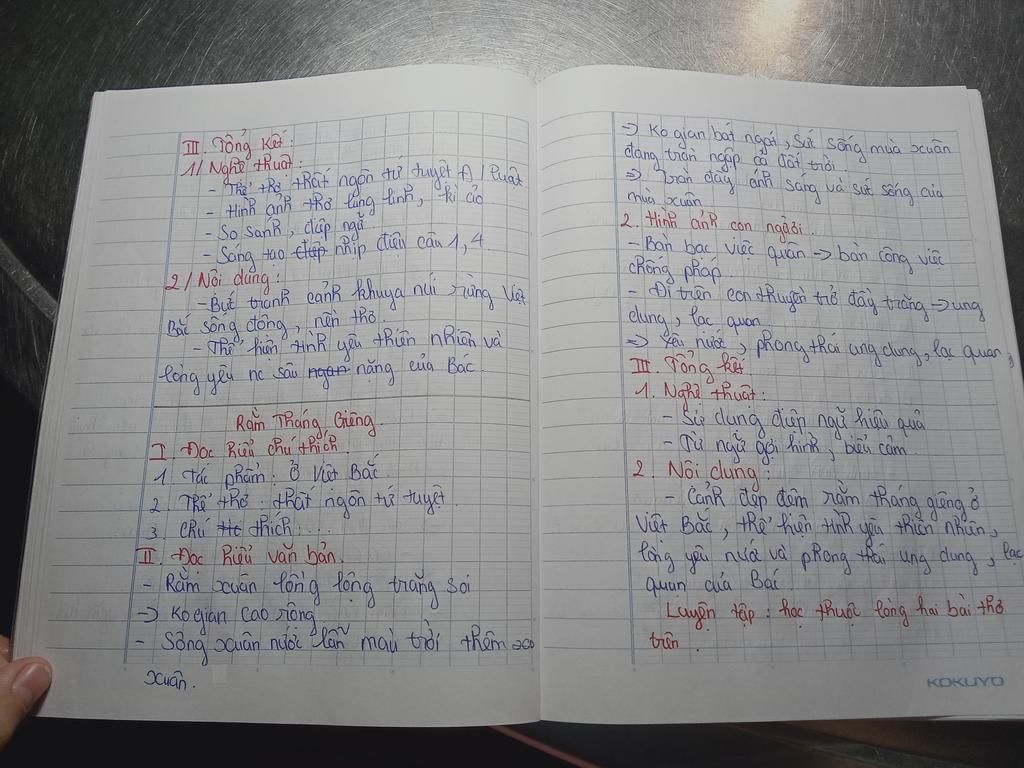 III. Tổng kết:
1/ Nghệ thuật:
- Thể thơ thất ngôn tứ tuyệt Đ/luật
- Hình ảnh thơ lung linh, kì ảo
- So sánh, điệp ngữ
- Sáng tạo điệp nhịp điệu câu 1,4
2/ Nội dung:
- Bức tranh cảnh khuya núi rừng Việt
Bắc sống động, nên thơ.
- Thể hiện tình yêu thiên nhiên và
lòng yêu nc sâu ngan nặng của Bác.
Rằm Tháng Giêng.
I. Đọc hiểu chú thích.
1. Tác phẩm: ở Việt Bắc.
2. Thể thơ: thất ngôn tứ tuyệt.
3. Chú thc thích:...
II. Đọc hiểu văn bản.
- Rằm xuân lồng lộng trăng soi
→ Ko gian cao rộng.
- Sông xuân nước lẫn màu trời thêm
xuân.
⇒ Ko gian bát ngát, sức sống mùa xuân
đang tràn ngập cả đất trời.
⇒ tràn đầy ánh sáng và sức sống của
mùa xuân.
2. Hình ảnh con người.
- Bàn bạc việc quân → bàn công việc
chống pháp.
- Đi trên con thuyền trở đầy trăng → ung
dung, lạc quan.
⇒ Yêu nước, phong thái ung dung, lạc quan,
III. Tổng kết
1. Nghệ thuật:
- Sử dụng điệp ngữ hiệu quả
- Từ ngữ gợi hình, biểu cảm.
2. Nội dung:
- Cảnh đẹp đêm rằm tháng giêng ở
Việt Bắc, thể hiện tình yêu thiên nhiên,
lòng yêu nước và phong thái ung dung, lạc
quan của Bác
Luyện tập: học thuộc lòng hai bài thơ
trên.
KOKUYO